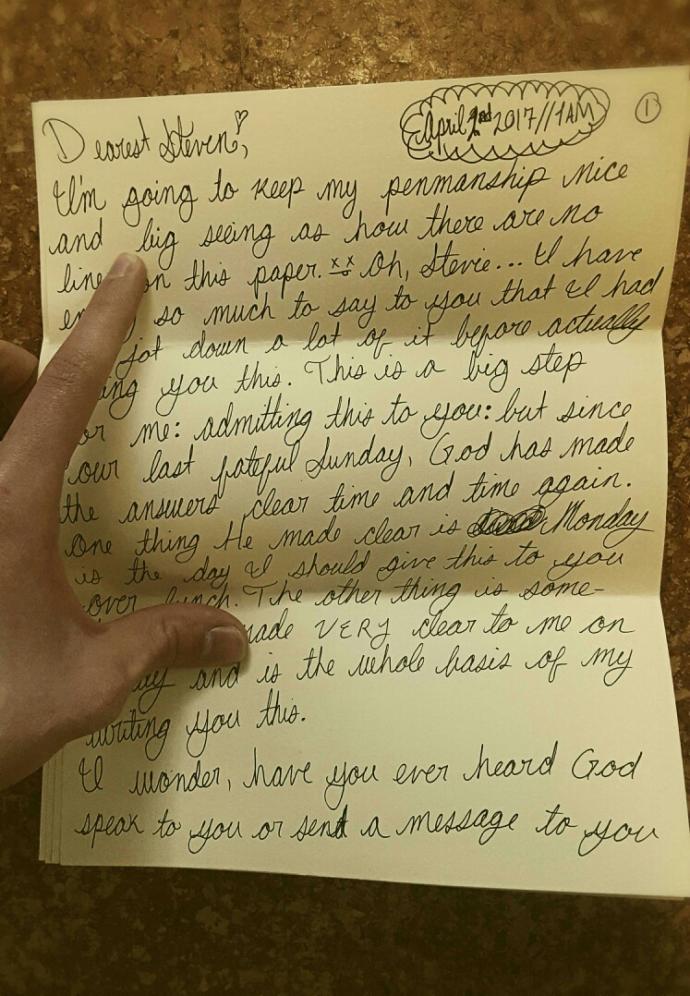 Dearest Steven,
April 2nd 2017//1AM
1
I'm going to keep my penmanship nice
and big seeing as how there are no
line on this paper. Oh, Stevie... I have
so much to say to you that I had
jot down a lot of it before actually
you this. This is a big step
or me: admitting this to you: but since
our last fateful Sunday, God has made
the answers clear time and time again.
One thing He made clear is Monday
is the day I should give this to you
over lunch. The other thing is some-
made VERY clear to me on
and is the whole basis of my
writing you this.
I wonder, have you ever heard God
speak to you or sent a message to you